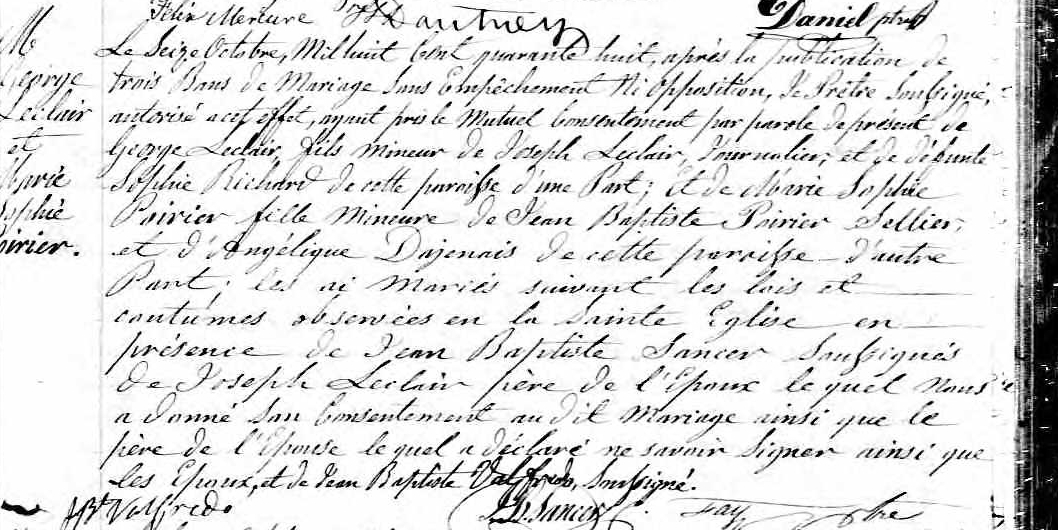 Felix Mercure Dautney Daniel ptre
M
George
Leclair
et
Marie
Sophie
Poirier.
Le Seize Octobre, Mil huit Cent quarante huit, après la publication de
trois Bans de Mariage sans Empêchement Ni Opposition, Je Prêtre Soussigné,
autorisé a cet effet, ayant pris le Mutuel Consentement par parole de présent de
George Leclair, fils mineur de Joseph Leclair, Journalier, et de défunte
Sophie Richard de cette paroisse d'une Part; Et de Marie Sophie
Poirier fille Mineure de Jean Baptiste Poirier Sellier,
et d'Angélique Dajenais de cette paroisse d'autre
Part; les ai Mariés suivant les lois et
coutúmes observées en la Sainte Eglise en
présence de Jean Baptiste Sancer Soussignés
de Joseph Leclair père de l'Epoux le quel nous
a donné son Consentement au dit Mariage ainsi que le
père de l'Epouse le quel a déclaré ne savoir Signer ainsi que
les Epoux, et de Jean Baptiste Valfredo, Soussigné.
JBt Valfredo J.B. Sancer C. Fay ptre